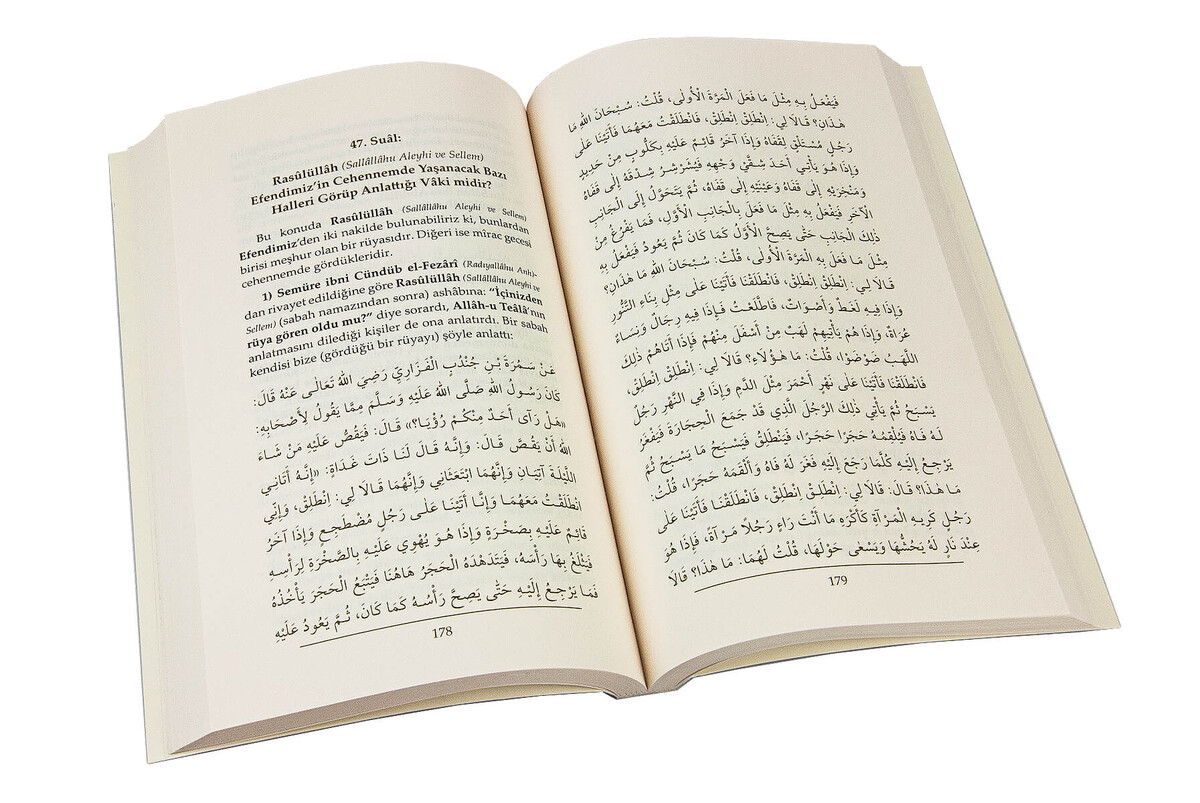 47. Suâl:
Rasûlüllâh (Sallâllâhu Aleyhi ve Sellem)
Efendimiz'in Cehennemde Yaşanacak Bazı
Halleri Görüp Anlattığı Vâki midir?
Bu konuda Rasûlüllâh (Sallâllâhu Aleyhi ve Sellem)
Efendimiz'den iki nakilde bulunabiliriz ki, bunlardan
birisi meşhur olan bir rüyasıdır. Diğeri ise mîrac gecesi
cehennemde gördükleridir.
1) Semüre ibni Cündüb el-Fezârî (Radıyallâhu Anh)-
dan rivayet edildiğine göre Rasûlüllâh (Sallâllâhu Aleyhi ve
Sellem) (sabah namazından sonra) ashâbına: "İçinizden
rüya gören oldu mu?" diye sorardı, Allâh-u Teâlâ'nın
anlatmasını dilediği kişiler de ona anlatırdı. Bir sabah
kendisi bize (gördüğü bir rüyayı) şöyle anlattı:
عَنْ سَمُرَةَ بْنِ جُنْدُبٍ الْفَزَارِيِّ رَضِيَ اللهُ تَعَالَى عَنْهُ قَالَ:
كَانَ رَسُولُ اللهِ صَلَّى اللهُ عَلَيْهِ وَسَلَّمَ مِمَّا يَقُولُ لِأَصْحَابِهِ:
«هَلْ رَأَى أَحَدٌ مِنْكُمْ رُؤْيَا؟» قَالَ: فَيَقُصُّ عَلَيْهِ مَنْ شَاءَ
اللهُ أَنْ يَقُصَّ قَالَ: وَإِنَّهُ قَالَ لَنَا ذَاتَ غَدَاةٍ: «إِنَّهُ أَتَانِي
اللَّيْلَةَ آتِيَانِ وَإِنَّهُمَا ابْتَعَثَانِي وَإِنَّهُمَا قَالَا لِي: اِنْطَلِقْ، وَإِنِّي
انْطَلَقْتُ مَعَهُمَا وَإِنَّا أَتَيْنَا عَلَى رَجُلٍ مُضْطَجِعٍ وَإِذَا آخَرُ
قَائِمٌ عَلَيْهِ بِصَخْرَةٍ وَإِذَا هُوَ يُهْوِي عَلَيْهِ بِالصَّخْرَةِ لِرَأْسِهِ
فَيَثْلَغُ بِهَا رَأْسَهُ، فَيَتَدَهْدَهُ الْحَجَرُ هَاهُنَا فَيَتْبَعُ الْحَجَرَ يَأْخُذُهُ
فَمَا يَرْجِعُ إِلَيْهِ حَتَّى يَصِحَّ رَأْسُهُ كَمَا كَانَ، ثُمَّ يَعُودُ عَلَيْهِ
178
فَيَفْعَلُ بِهِ مِثْلَ مَا فَعَلَ الْمَرَّةَ الْأُولَى، قُلْتُ: سُبْحَانَ اللهِ مَا
هَذَانِ؟ قَالَا لِي: اِنْطَلِقْ اِنْطَلِقْ، فَانْطَلَقْتُ مَعَهُمَا فَأَتَيْنَا عَلَى
رَجُلٍ مُسْتَلْقٍ لِقَفَاهُ وَإِذَا آخَرُ قَائِمٌ عَلَيْهِ بِكَلُّوبٍ مِنْ حَدِيدٍ
وَإِذَا هُوَ يَأْتِي أَحَدَ شِقَّيْ وَجْهِهِ فَيُشَرْشِرُ شِدْقَهُ إِلَى قَفَاهُ
وَمَنْخِرَيْهِ إِلَى قَفَاهُ وَعَيْنَيْهِ إِلَى قَفَاهُ، ثُمَّ يَتَحَوَّلُ إِلَى الْجَانِبِ
الْآخَرِ فَيَفْعَلُ بِهِ مِثْلَ مَا فَعَلَ بِالْجَانِبِ الْأَوَّلِ، فَمَا يَفْرُغُ مِنْ
ذَلِكَ الْجَانِبِ حَتَّى يَصِحَّ الْأَوَّلُ كَمَا كَانَ ثُمَّ يَعُودُ فَيَفْعَلُ بِهِ
مِثْلَ مَا فَعَلَ بِهِ الْمَرَّةَ الْأُولَى، قُلْتُ: سُبْحَانَ اللهِ مَا هَذَانِ؟
قَالَا لِي: اِنْطَلِقْ اِنْطَلِقْ، فَانْطَلَقْنَا فَأَتَيْنَا عَلَى مِثْلِ بِنَاءِ التَّنُّورِ
وَإِذَا فِيهِ لَغَطٌ وَأَصْوَاتٌ، فَاطَّلَعْتُ فَإِذَا فِيهِ رِجَالٌ وَنِسَاءٌ
عُرَاةٌ، وَإِذَا هُمْ يَأْتِيهِمْ لَهَبٌ مِنْ أَسْفَلَ مِنْهُمْ فَإِذَا أَتَاهُمْ ذَلِكَ
اللَّهَبُ ضَوْضَوْا، قُلْتُ: مَا هَؤُلَاءِ؟ قَالَا لِي: اِنْطَلِقْ اِنْطَلِقْ،
فَانْطَلَقْنَا فَأَتَيْنَا عَلَى نَهْرٍ أَحْمَرَ مِثْلَ الدَّمِ وَإِذَا فِي النَّهْرِ رَجُلٌ
يَسْبَحُ ثُمَّ يَأْتِي ذَلِكَ الرَّجُلُ الَّذِي قَدْ جَمَعَ الْحِجَارَةَ فَيَفْغَرُ
لَهُ فَاهُ فَيُلْقِمُهُ حَجَرًا حَجَرًا، فَيَنْطَلِقُ فَيَسْبَحُ مَا يَسْبَحُ ثُمَّ
يَرْجِعُ إِلَيْهِ كُلَّمَا رَجَعَ إِلَيْهِ فَغَرَ لَهُ فَاهُ وَأَلْقَمَهُ حَجَرًا، قُلْتُ:
مَا هَذَا؟ قَالَ: قَالَا لِي: اِنْطَلِقْ اِنْطَلِقْ، فَانْطَلَقْنَا فَأَتَيْنَا عَلَى
رَجُلٍ كَرِيهِ الْمَرْآةِ كَأَكْرَهِ مَا أَنْتَ رَاءٍ رَجُلًا مَرْآةً، فَإِذَا هُوَ
عِنْدَ نَارٍ لَهُ يَحُشُّهَا وَيَسْعَى حَوْلَهَا، قُلْتُ لَهُمَا: مَا هَذَا؟ قَالَا
179